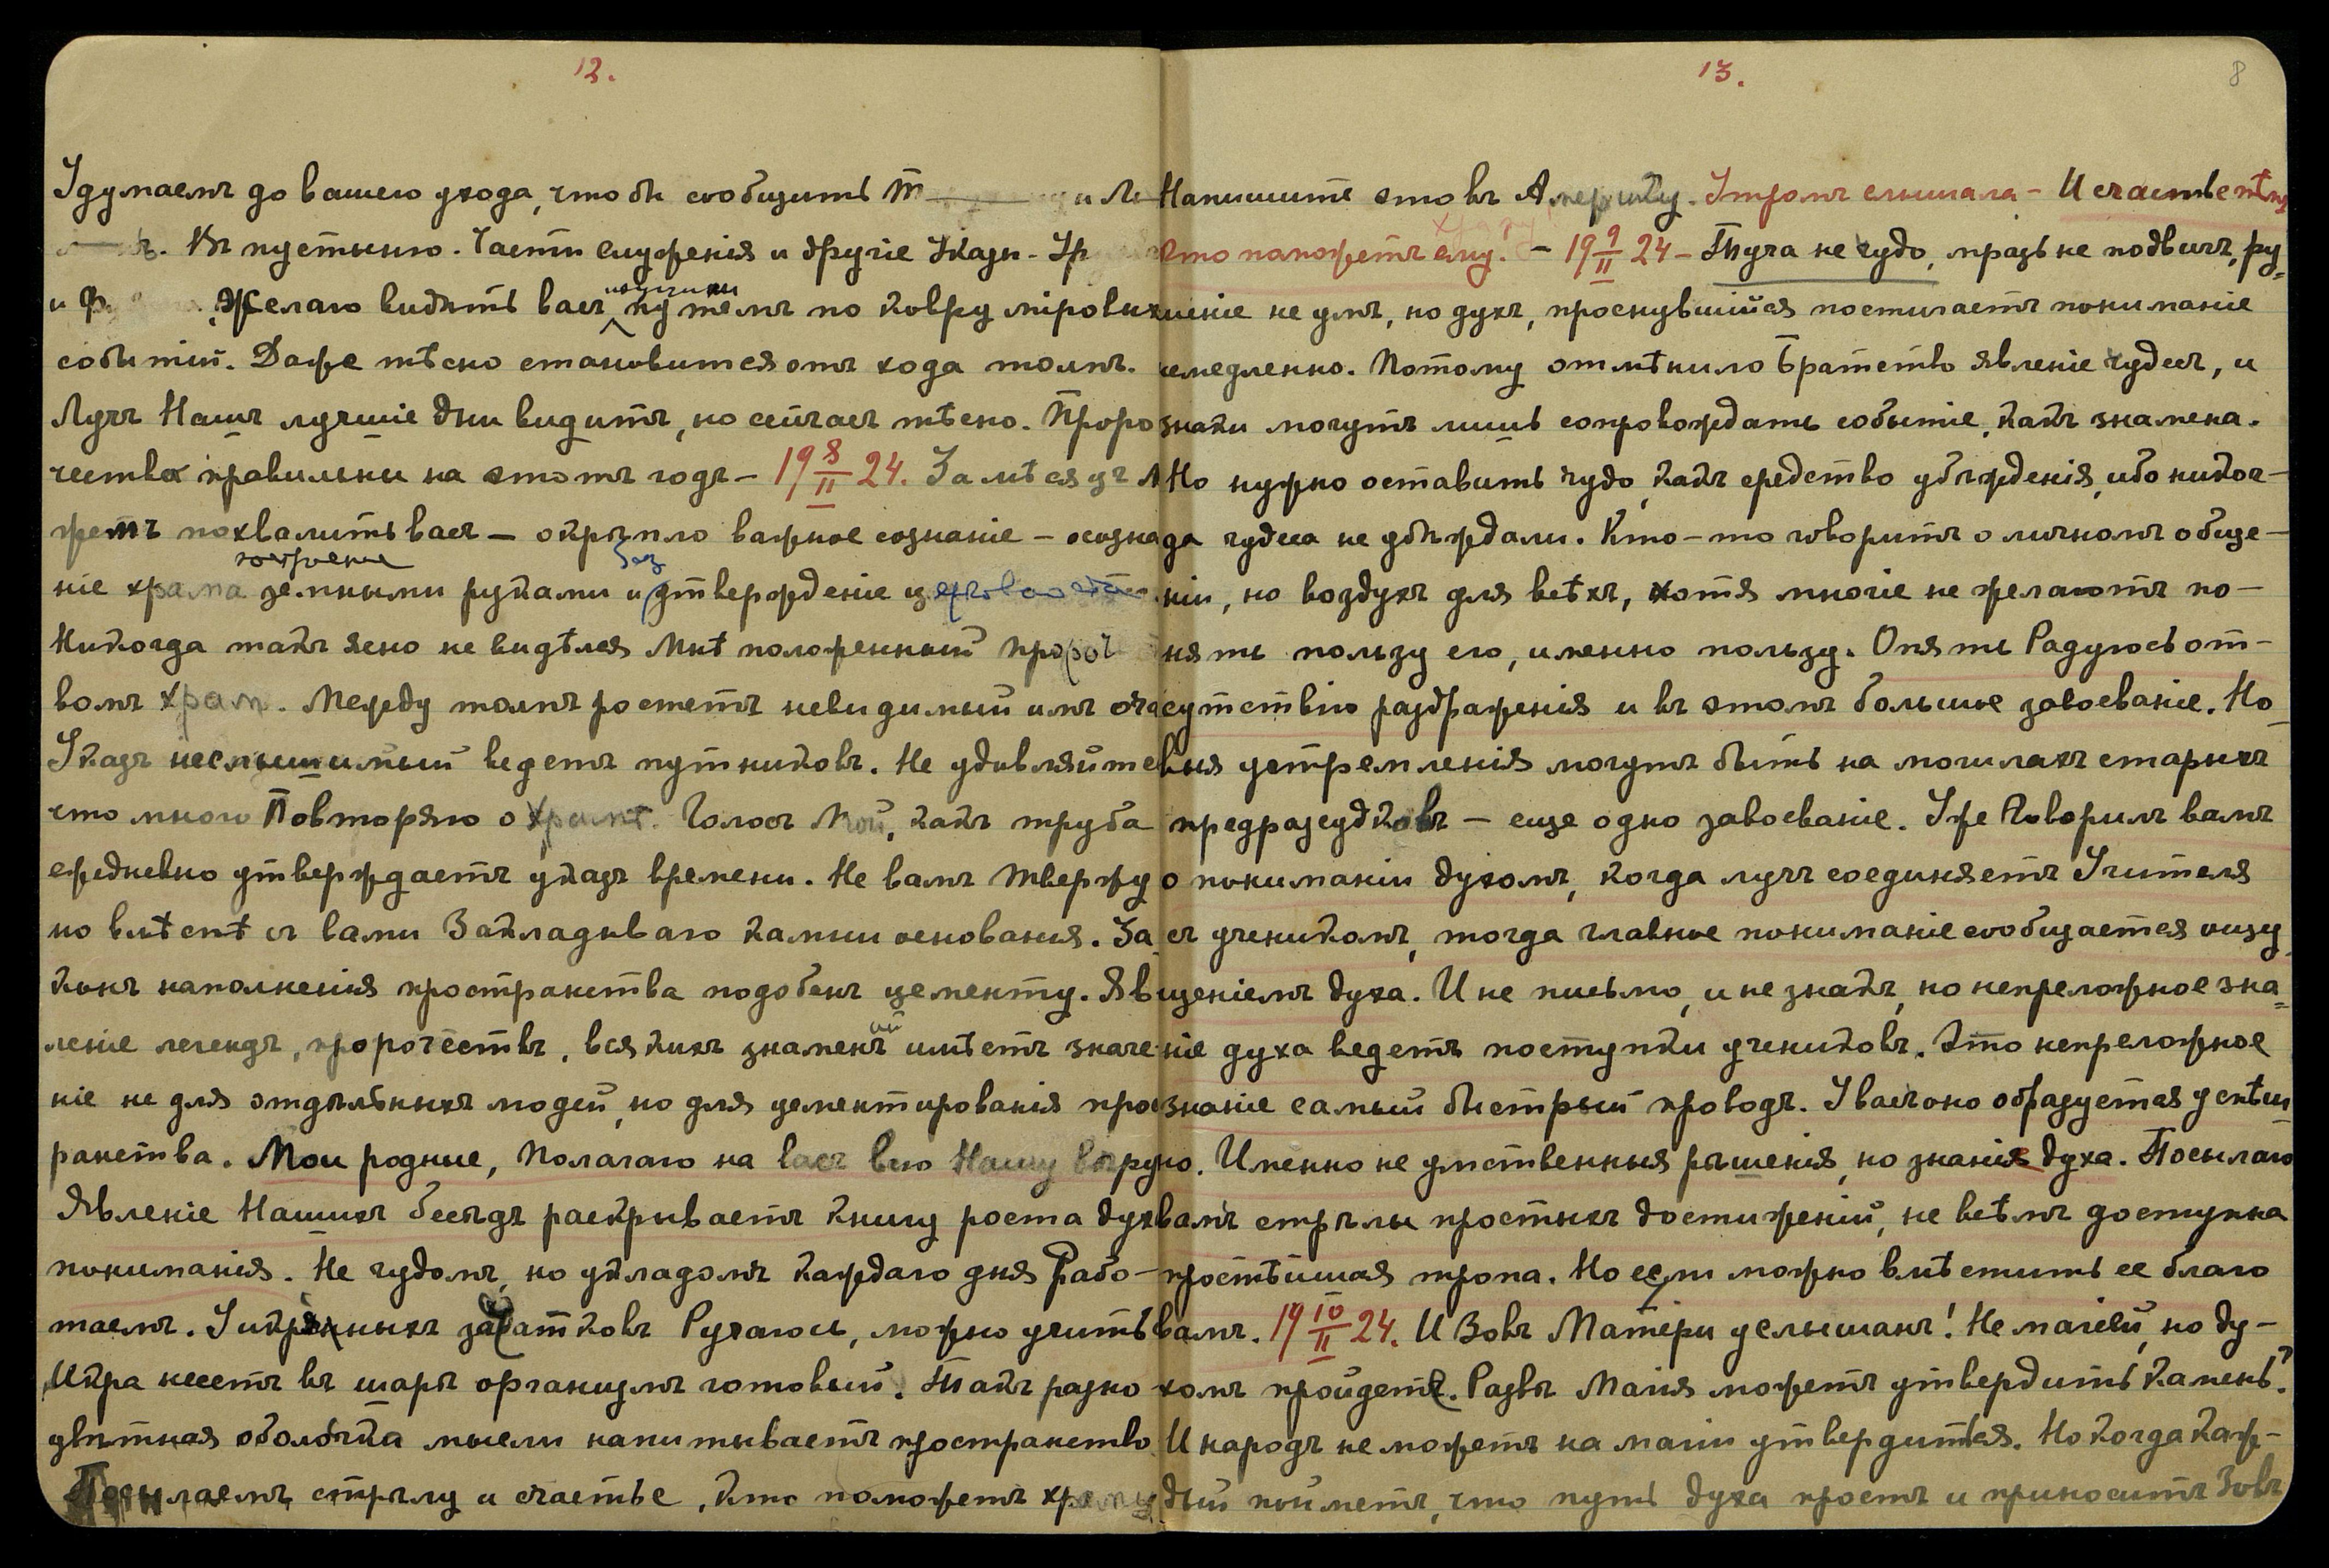 12.
Удумаемъ до вашего ухода, чтобы сообщить
Въ пустыню. Части служенія и другіе Указы.
и Желаю видѣть васъ идущими путемъ по ковру міровыхъ
событій. Даже тѣсно становится отъ хода толпъ.
Лучъ Нашъ лучшіе дни видитъ, но сейчасъ тѣсно. Проро
чества правильны на этотъ годъ – 19 8/II 24. За мѣсяцъ
жетъ похвалить васъ – окрѣпло важное сознаніе – осозна
ніе храма построеніе земными руками и утвержденіе
Никогда такъ ясно не видѣлся Мнѣ положенный
вомъ храм. Между толпъ ростетъ невидимый имъ
Указъ неслышимый ведетъ путниковъ. Не удивляйте
что много Повторяю о храмѣ. Голосъ Мой, какъ труба
ежедневно утверждаетъ указъ времени. Не вамъ твержу
но вмѣстѣ съ вами Закладываю камни основанія. За
конъ наполненія пространства подобенъ цементу. Яв
леніе легендъ, пророчествъ, всякихъ знаменій имѣетъ значе
ніе не для отдѣльныхъ людей, но для цементированія прост
ранства. Мои родные, Полагаю на васъ всю Нашу вѣру
Явленіе Нашихъ бесѣдъ раскрываетъ книгу роста дух
пониманія. Не чудомъ, но укладомъ каждаго дня Рабо-
таемъ. У икряныхъ зачатковъ Ручаюсь, можно учить
Икра несетъ въ шарѣ организмъ готовый. Такъ разно
цвѣтная оболочка мысли напитываетъ пространство
Посылаемъ стрѣлу и счастье, кто поможетъ храму
13.
8
Напишите это въ Америку. Утромъ слышала – И счастье тѣмъ
кто поможетъ ему! – 19 9/II 24 – Туча не чудо, мразь не подвигъ, ру=
шеніе не умъ, но духъ, проснувшійся постигаетъ пониманіе
немедленно. Потому отмѣнило Братство явленіе чудесъ, и
знаки могутъ лишь сопровождать событіе, какъ знамена.
Но нужно оставить чудо, какъ средство убѣжденія, ибо никог-
да чудеса не убѣждали. Кто-то говоритъ о личномъ обще-
ніи, но воздухъ для всѣхъ, хотя многіе не желаютъ по-
нять пользу его, именно пользу. Опять Радуюсь от-
сутствію раздраженія и въ этомъ большое завоеваніе. Но
выя устремленія могутъ быть на могилахъ старыхъ
предразсудковъ – еще одно завоеваніе. Уже Говорилъ вамъ
о пониманіи духомъ, когда лучъ соединяетъ Учителя
съ ученикомъ, тогда главное пониманіе сообщается ощу
щеніемъ духа. И не письмо, и не знакъ, но непреложное зна=
ніе духа ведетъ поступки учениковъ. Это непреложное
знаніе самый быстрый проводъ. У васъ оно образуется
ю. Именно не умственныя рѣшенія, но знанія духа. Посылаю
вамъ стрѣлы простыхъ достиженій, не всѣмъ доступна
простѣйшая тропа. Но если можно вмѣстить ее благо
вамъ. 19 10/II 24. И Зовъ Матери услышанъ! Не магіей, но ду-
хомъ пройдетъ. Развѣ Магія можетъ утвердить камень?
И народъ не можетъ на магіи утвердиться. Но когда каж-
дый пойметъ, что путь духа простъ и приноситъ Зовъ